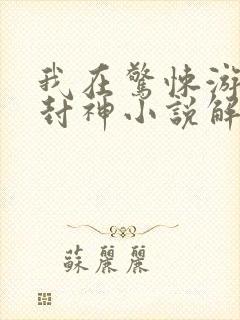 我在驚悚游
封神小說解
蘇麗麗